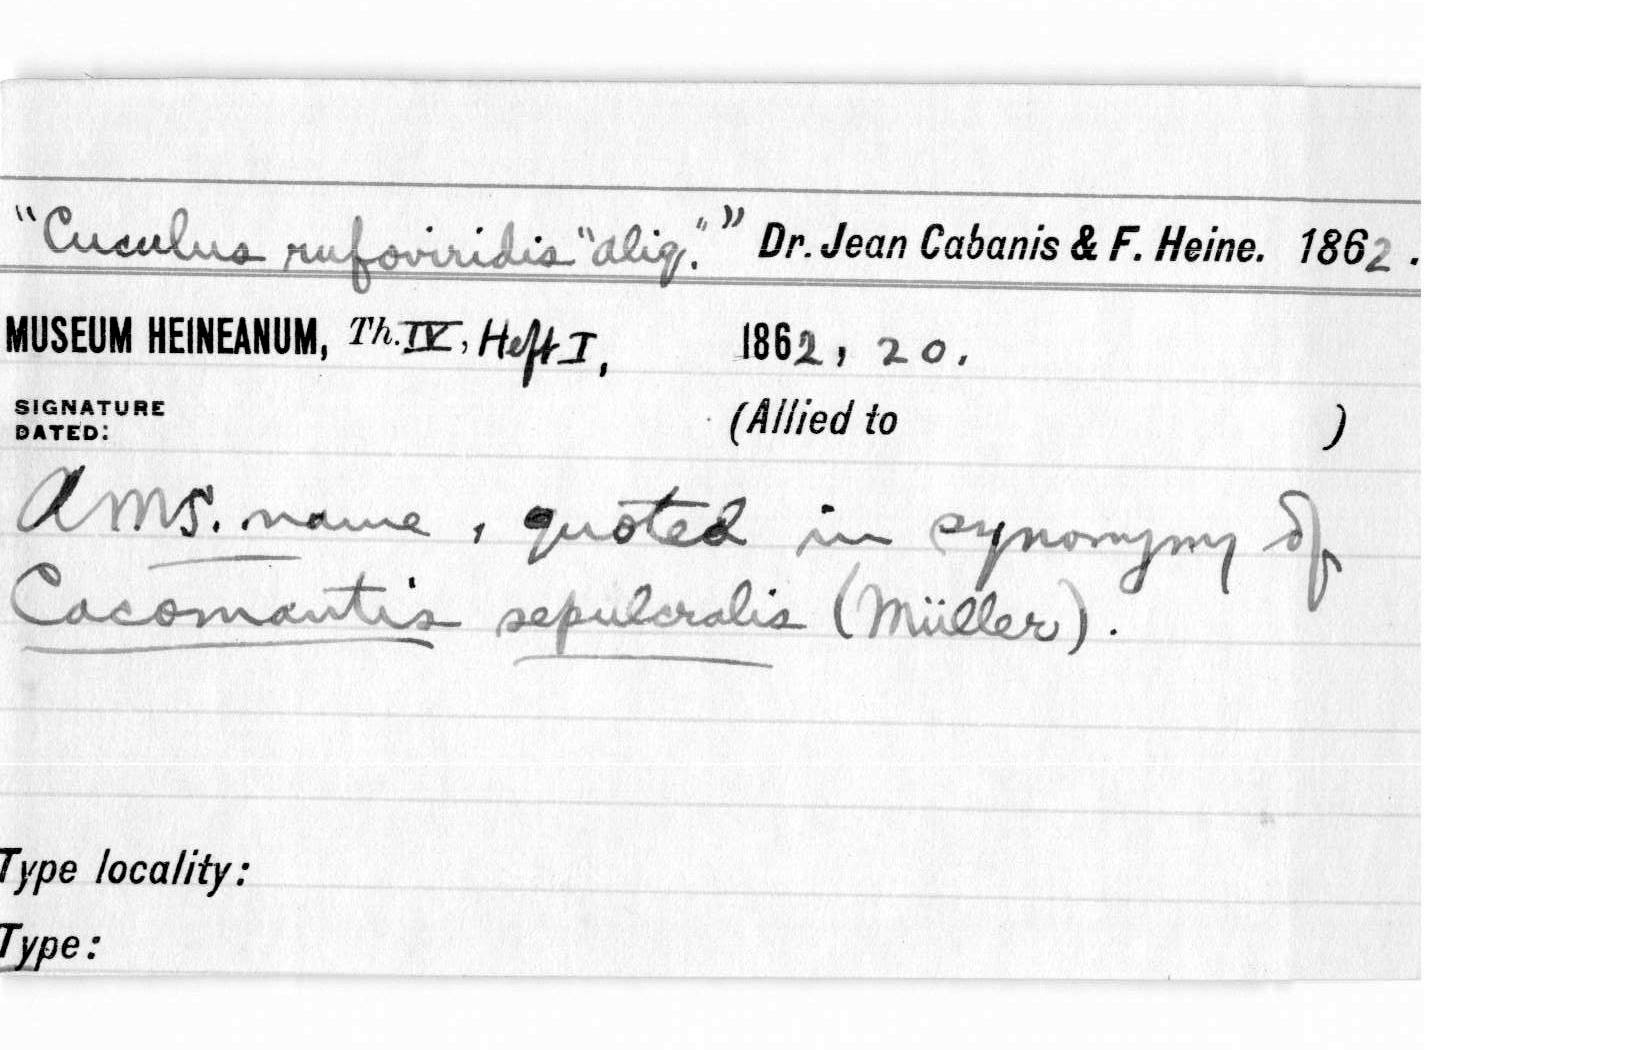 "Cuculus rufoviridis "aliq."" Dr. Jean Cabanis & F. Heine. 1862.
MUSEUM HEINEANUM, Th. IV, Heft I, 1862, 20.
SIGNATURE
DATED:
(Allied to )
A MS. name, quoted in synonymy of
Cacomantis sepulcralis (Müller).
Type locality:
Type: